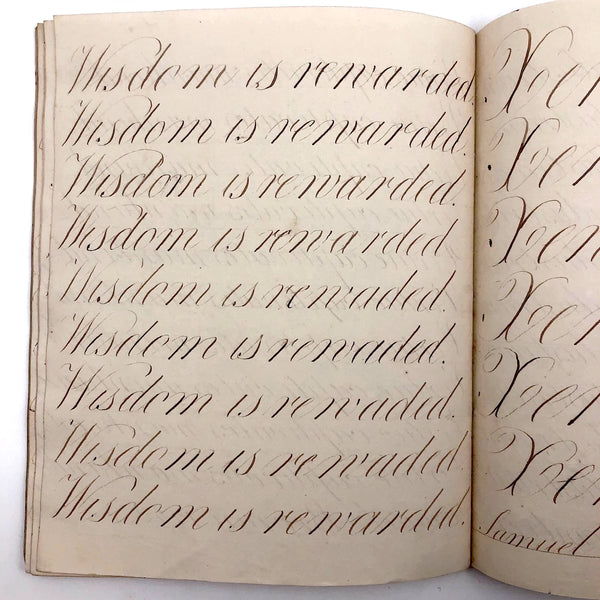 Wisdom is rewarded.
Wisdom is rewarded.
Wisdom is rewarded.
Wisdom is rewarded
Wisdom is rewaded.
Wisdom is rewaded.
Wisdom is rewaded.
Wisdom is rewaded.
Wisdom is rewarded.
Samuel